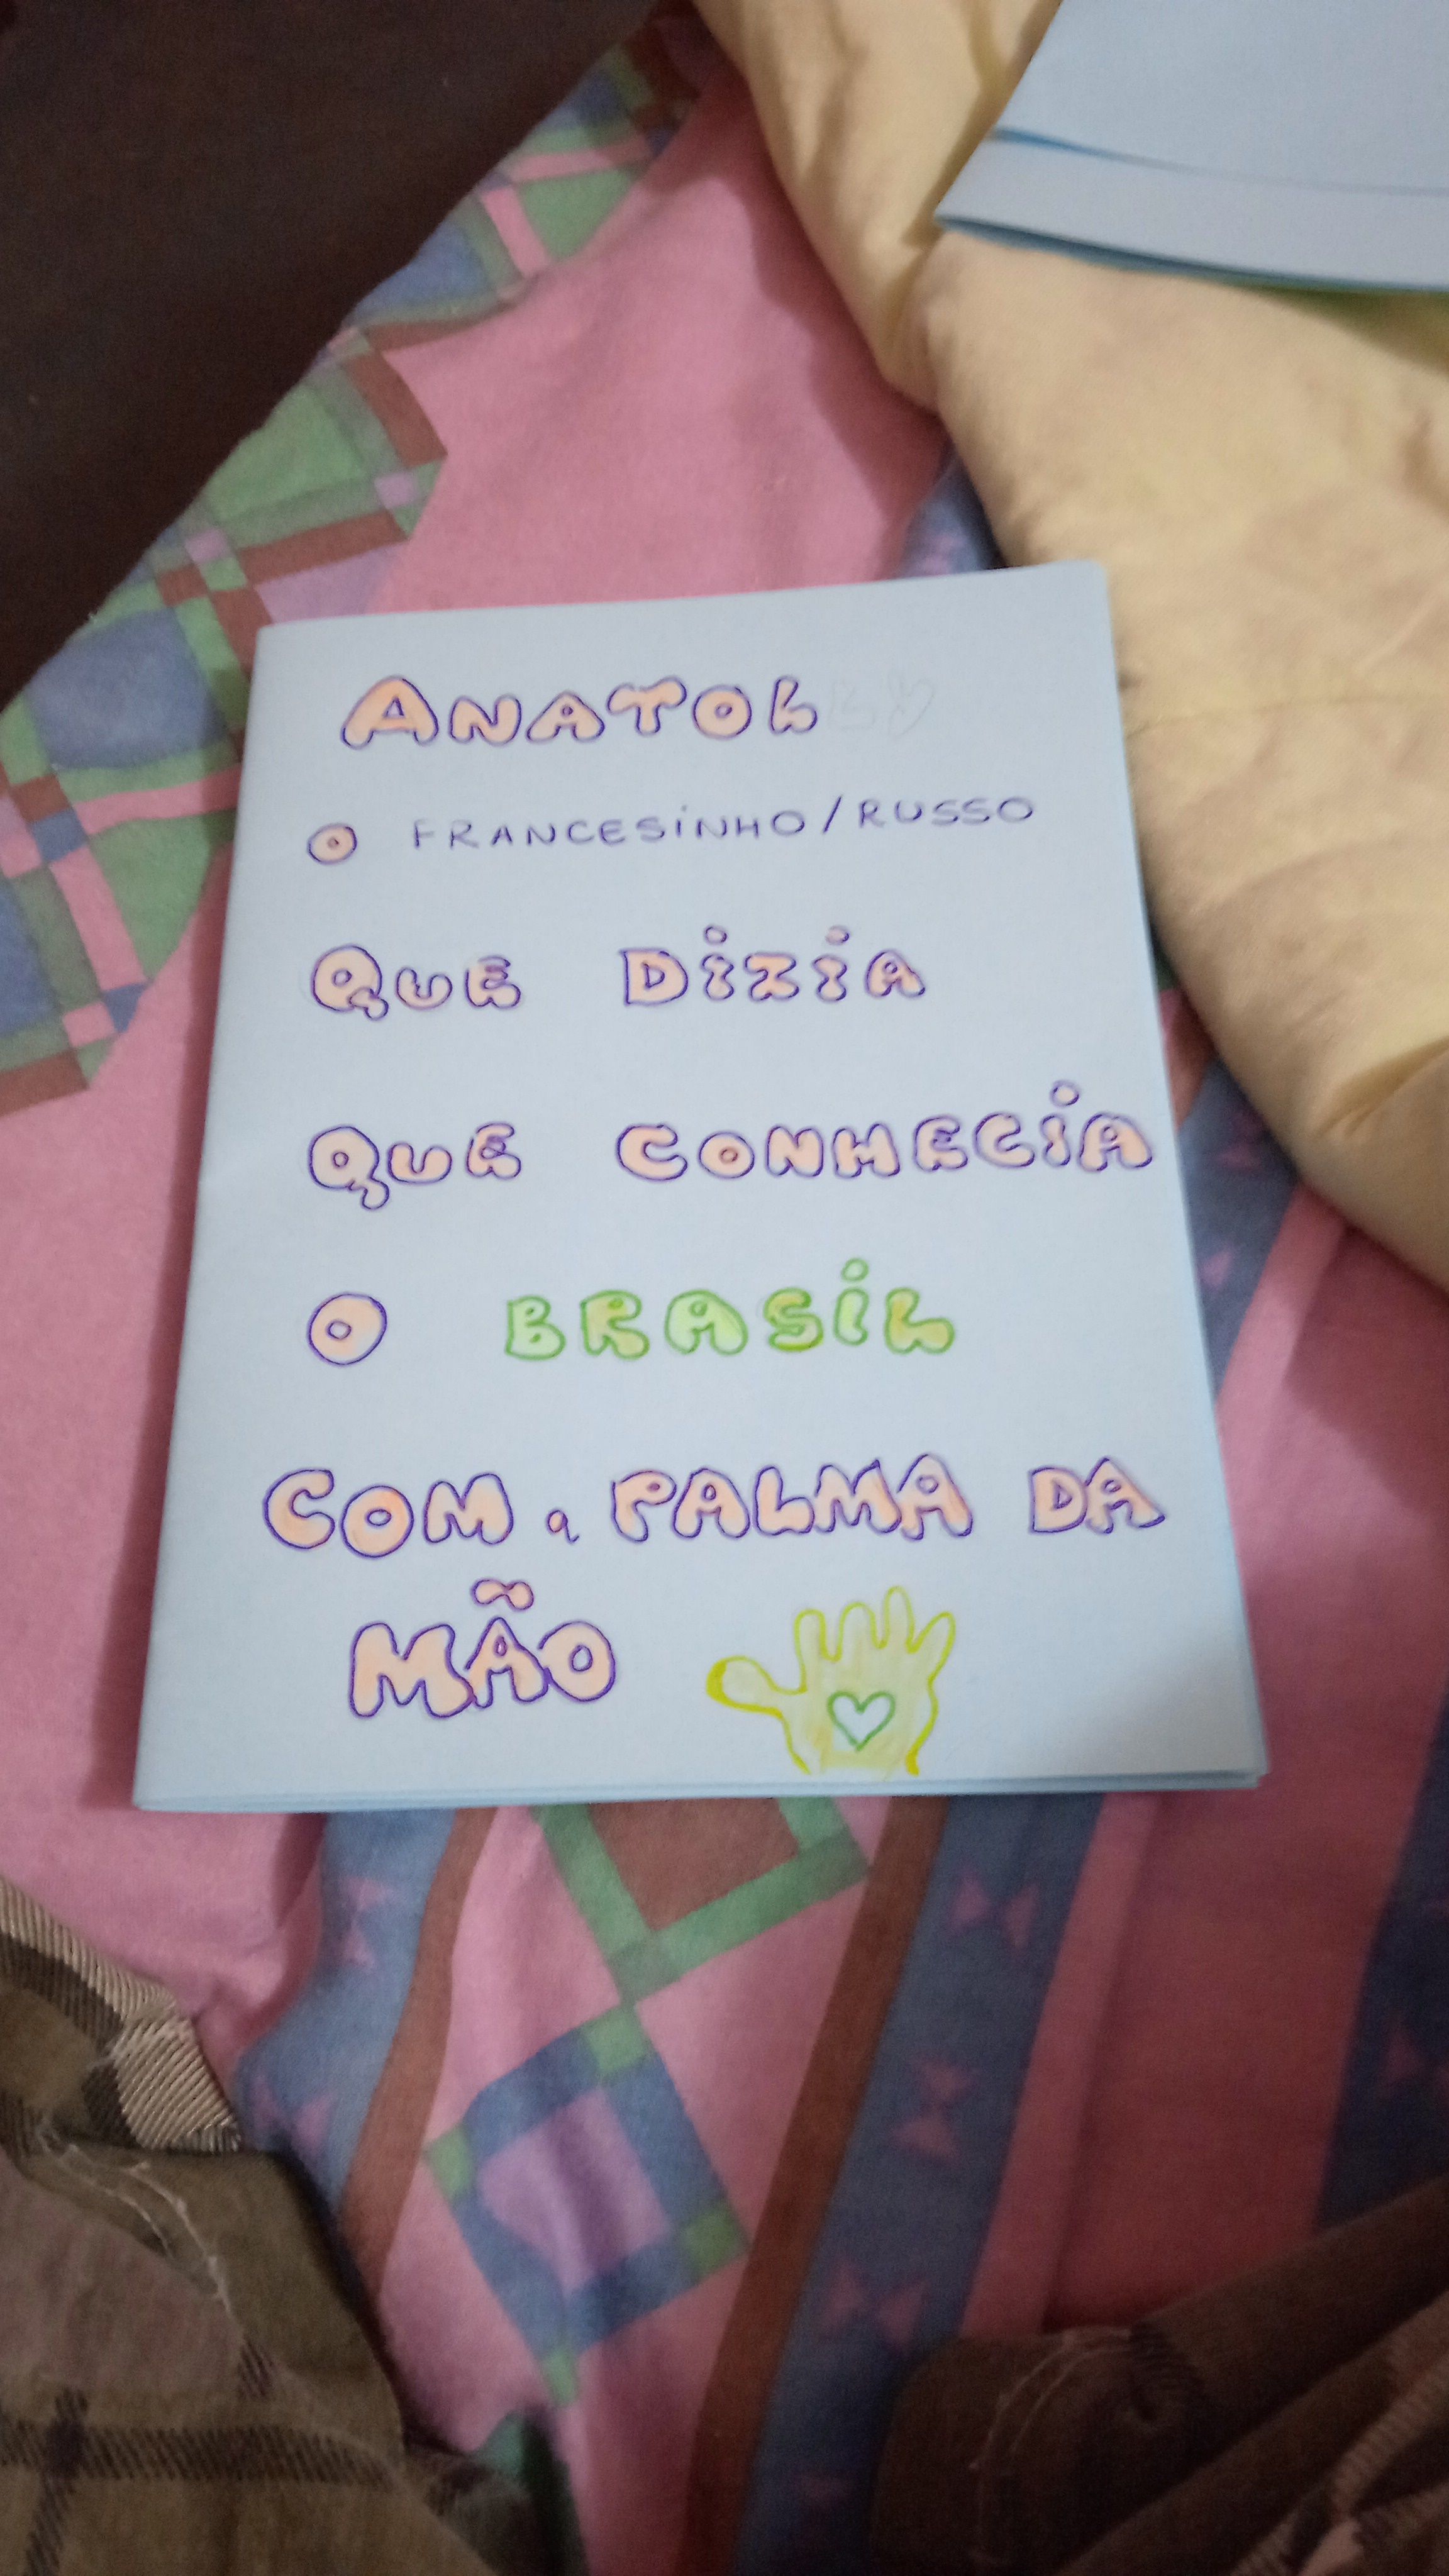 ANATOLLY
O FRANCESINHO/RUSSO
QUE DIZIA
QUE CONHECIA
O BRASIL
COM a PALMA DA
MÃO